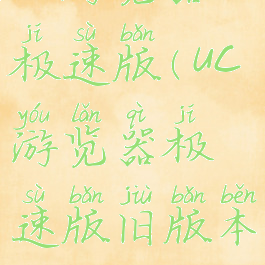 jí sù bǎn
极速版(UC
yóu lǎn qì jí
游览器极
sù bǎn jiù bǎn běn
速版旧版本